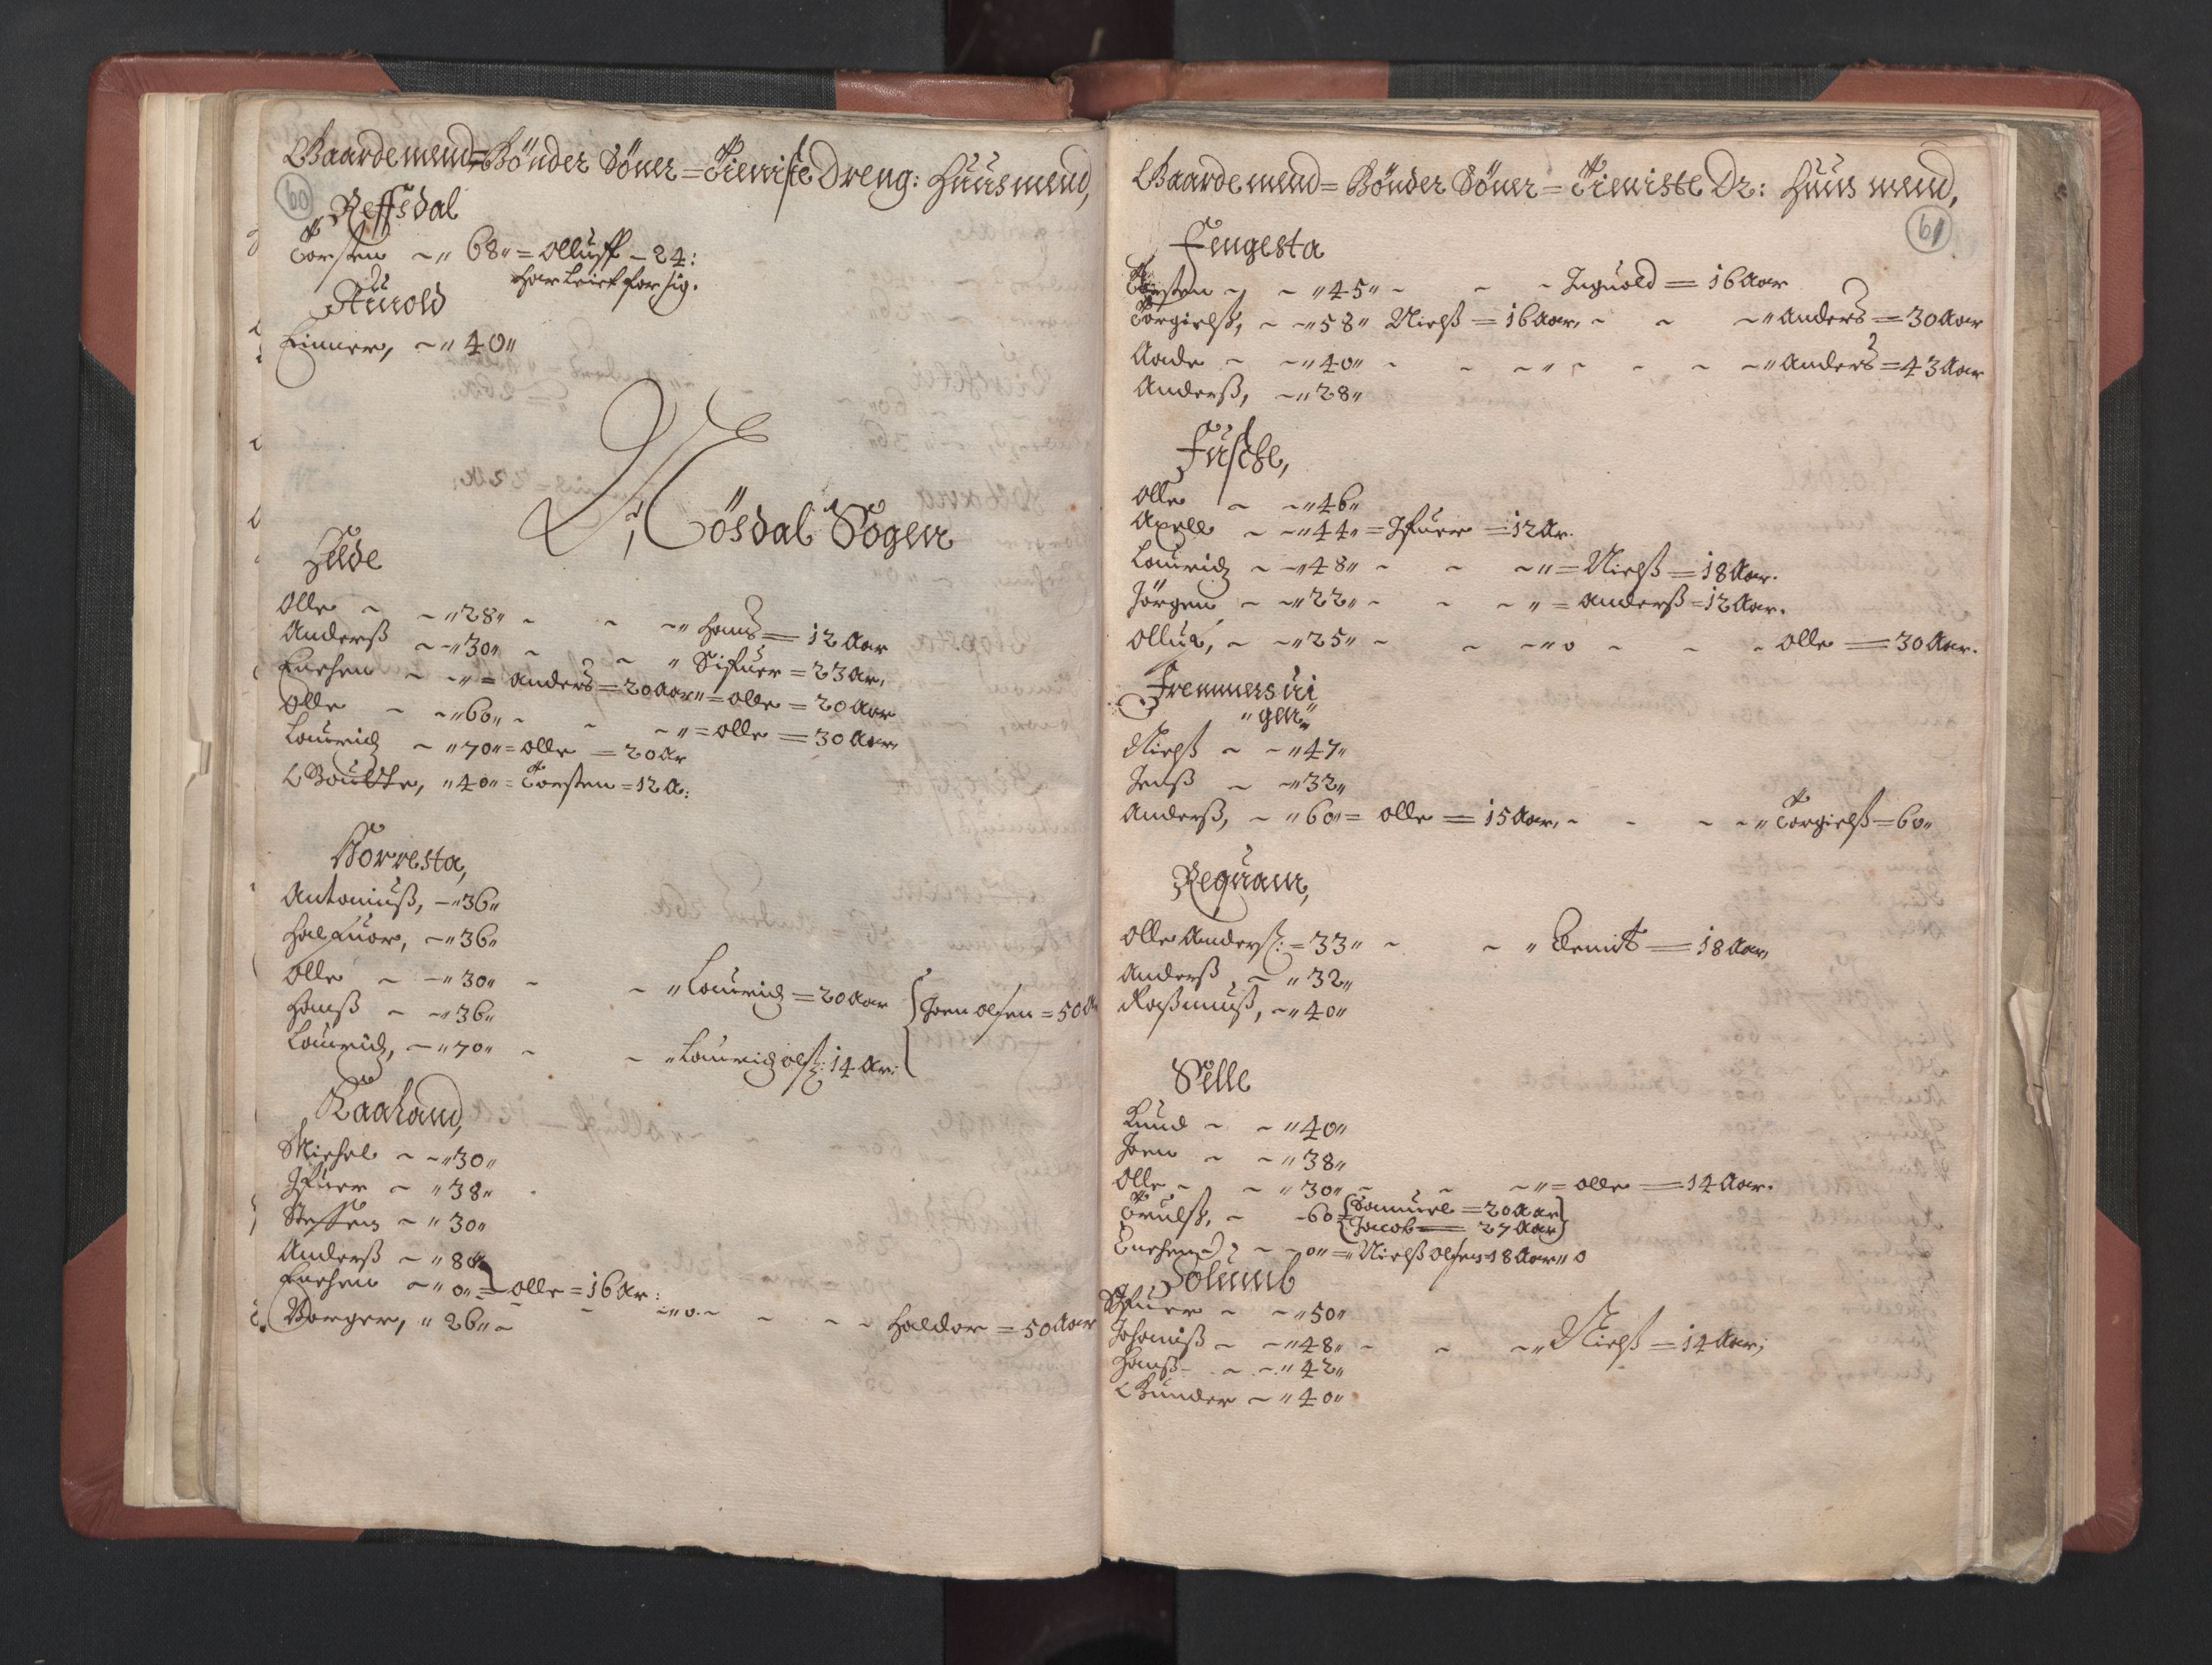 Gaardemend= Bönder Söner = Tieniste Dreng: Huusmend,
60
Reffsdal
Torsten ~ " 68 " = Olluff - 24:
Aurold
Einner, ~ " 40 "
Lösdal Sogen
Helde
Olle ~ ~ " 28 " ~ ~ ~ " Hans = 12 Aar
Anderß ~ ~ " 30 " ~ ~ " Sifuer = 23 Ar,
Enchen ~ ~ " = Anders = 20 Aar " = Olle = 20 Aar
Olle ~ ~ " 60 " ~ ~ ~ " = Olle = 30 Aar,
Lauridz ~ " 70 " = Olle = 20 Ar
Goutte, " 40 " = Torsten = 12 A:
Norresta,
Antoniuß, ~ " 36 "
Halfuor, ~ " 36 "
Olle ~ ~ " 30 " ~ ~ " Lauridz = 20 Aar
Hanß ~ ~ " 36 " Joen Olsen = 50 A
Lauridz, ~ " 70 " ~ ~ " Lauridz Olß: 14 Ar:
Kaaland,
Michel ~ ~ " 30 "
Ifuer ~ " 38 "
Steffen ~ " 30 "
Anderß ~ " 80
Enchen ~ " 0 " = Olle = 16 Ar:
Borger, " 26 " ~ ~ ~ " 0 ~ ~ ~ ~ Haldor = 50 Aar
Gaardemend= Bönder Söner = Tieniste Dr: Huus mend,
61
Fengesta
Torsten ~ ~ " 45 " ~ ~ ~ Inguold = 16 Aar
Torgielß, ~ ~ " 58 " Nielß = 16 Aar, ~ ~ ~ " Anders = 30 Aar
Aade ~ ~ " 40 " ~ ~ ~ " ~ ~ ~ ~ " Anders = 43 Aar
Anderß, ~ " 28 "
Fusche,
Olle ~ ~ " 46 "
Axell ~ ~ " 44 " = Ifuer = 12 Ar.
Lauridz ~ ~ " 48 " ~ ~ ~ " = Nielß = 18 Aar.
Jörgen ~ ~ " 22 " ~ ~ ~ " = Anderß = 12 Aar.
Olluer, ~ ~ " 25 " ~ ~ ~ " 0 ~ ~ ~ Olle = 30 Aar.
Fremmersui
" gen "
Nielß ~ ~ " 47 "
Jenß ~ ~ " 32 "
Anderß, ~ " 60 " = Olle = 15 Aar, ~ ~ ~ ~ " Torgielß = 60 "
Reguam,
Olle Anderß: = 33 " ~ ~ " Bernit = 18 Aar,
Anderß ~ " 32 "
Raßmuß, ~ " 40 "
Selle
Knud ~ ~ " 40 "
Joen ~ ~ " 38 "
Olle ~ ~ " 30 " ~ ~ ~ " = Olle = 14 Aar.
Trulß, ~ ~ 60 = Samuel = 20 Aar
Jacob = 27 Aar
Enchen ~ ~ 0 " = " Nielß Olsen = 18 Aar " 0
Solumb
Sifuer ~ ~ " 50 "
Johanniß ~ ~ " 48 " ~ ~ ~ " Nielß = 14 Aar;
Hanß ~ ~ " 42 "
Gunder ~ " 40 "